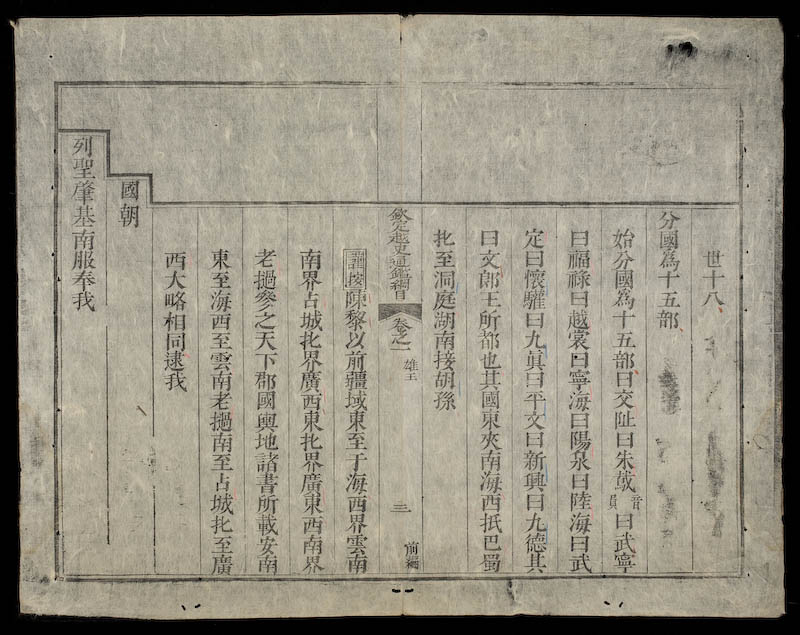 世十八
分國為十五部
始分國為十五部曰交阯曰朱䳒音員曰武寧
曰福祿曰越裳曰寧海曰陽泉曰陸海曰武
定曰懷驩曰九真曰平文曰新興曰九德其
曰文郎王所都也其國東夾南海西抵巴蜀
北至洞庭湖南接胡孫
欽定越史通鑑綱目 卷之一 雄王 三 前編
謹按陳黎以前疆域東至于海西界雲南
南界占城北界廣西東北界廣東西南界
老撾參之天下郡國輿地諸書所載安南
東至海西至雲南老撾南至占城北至廣
西大略相同逮我
國朝
列聖肇基南服奉我